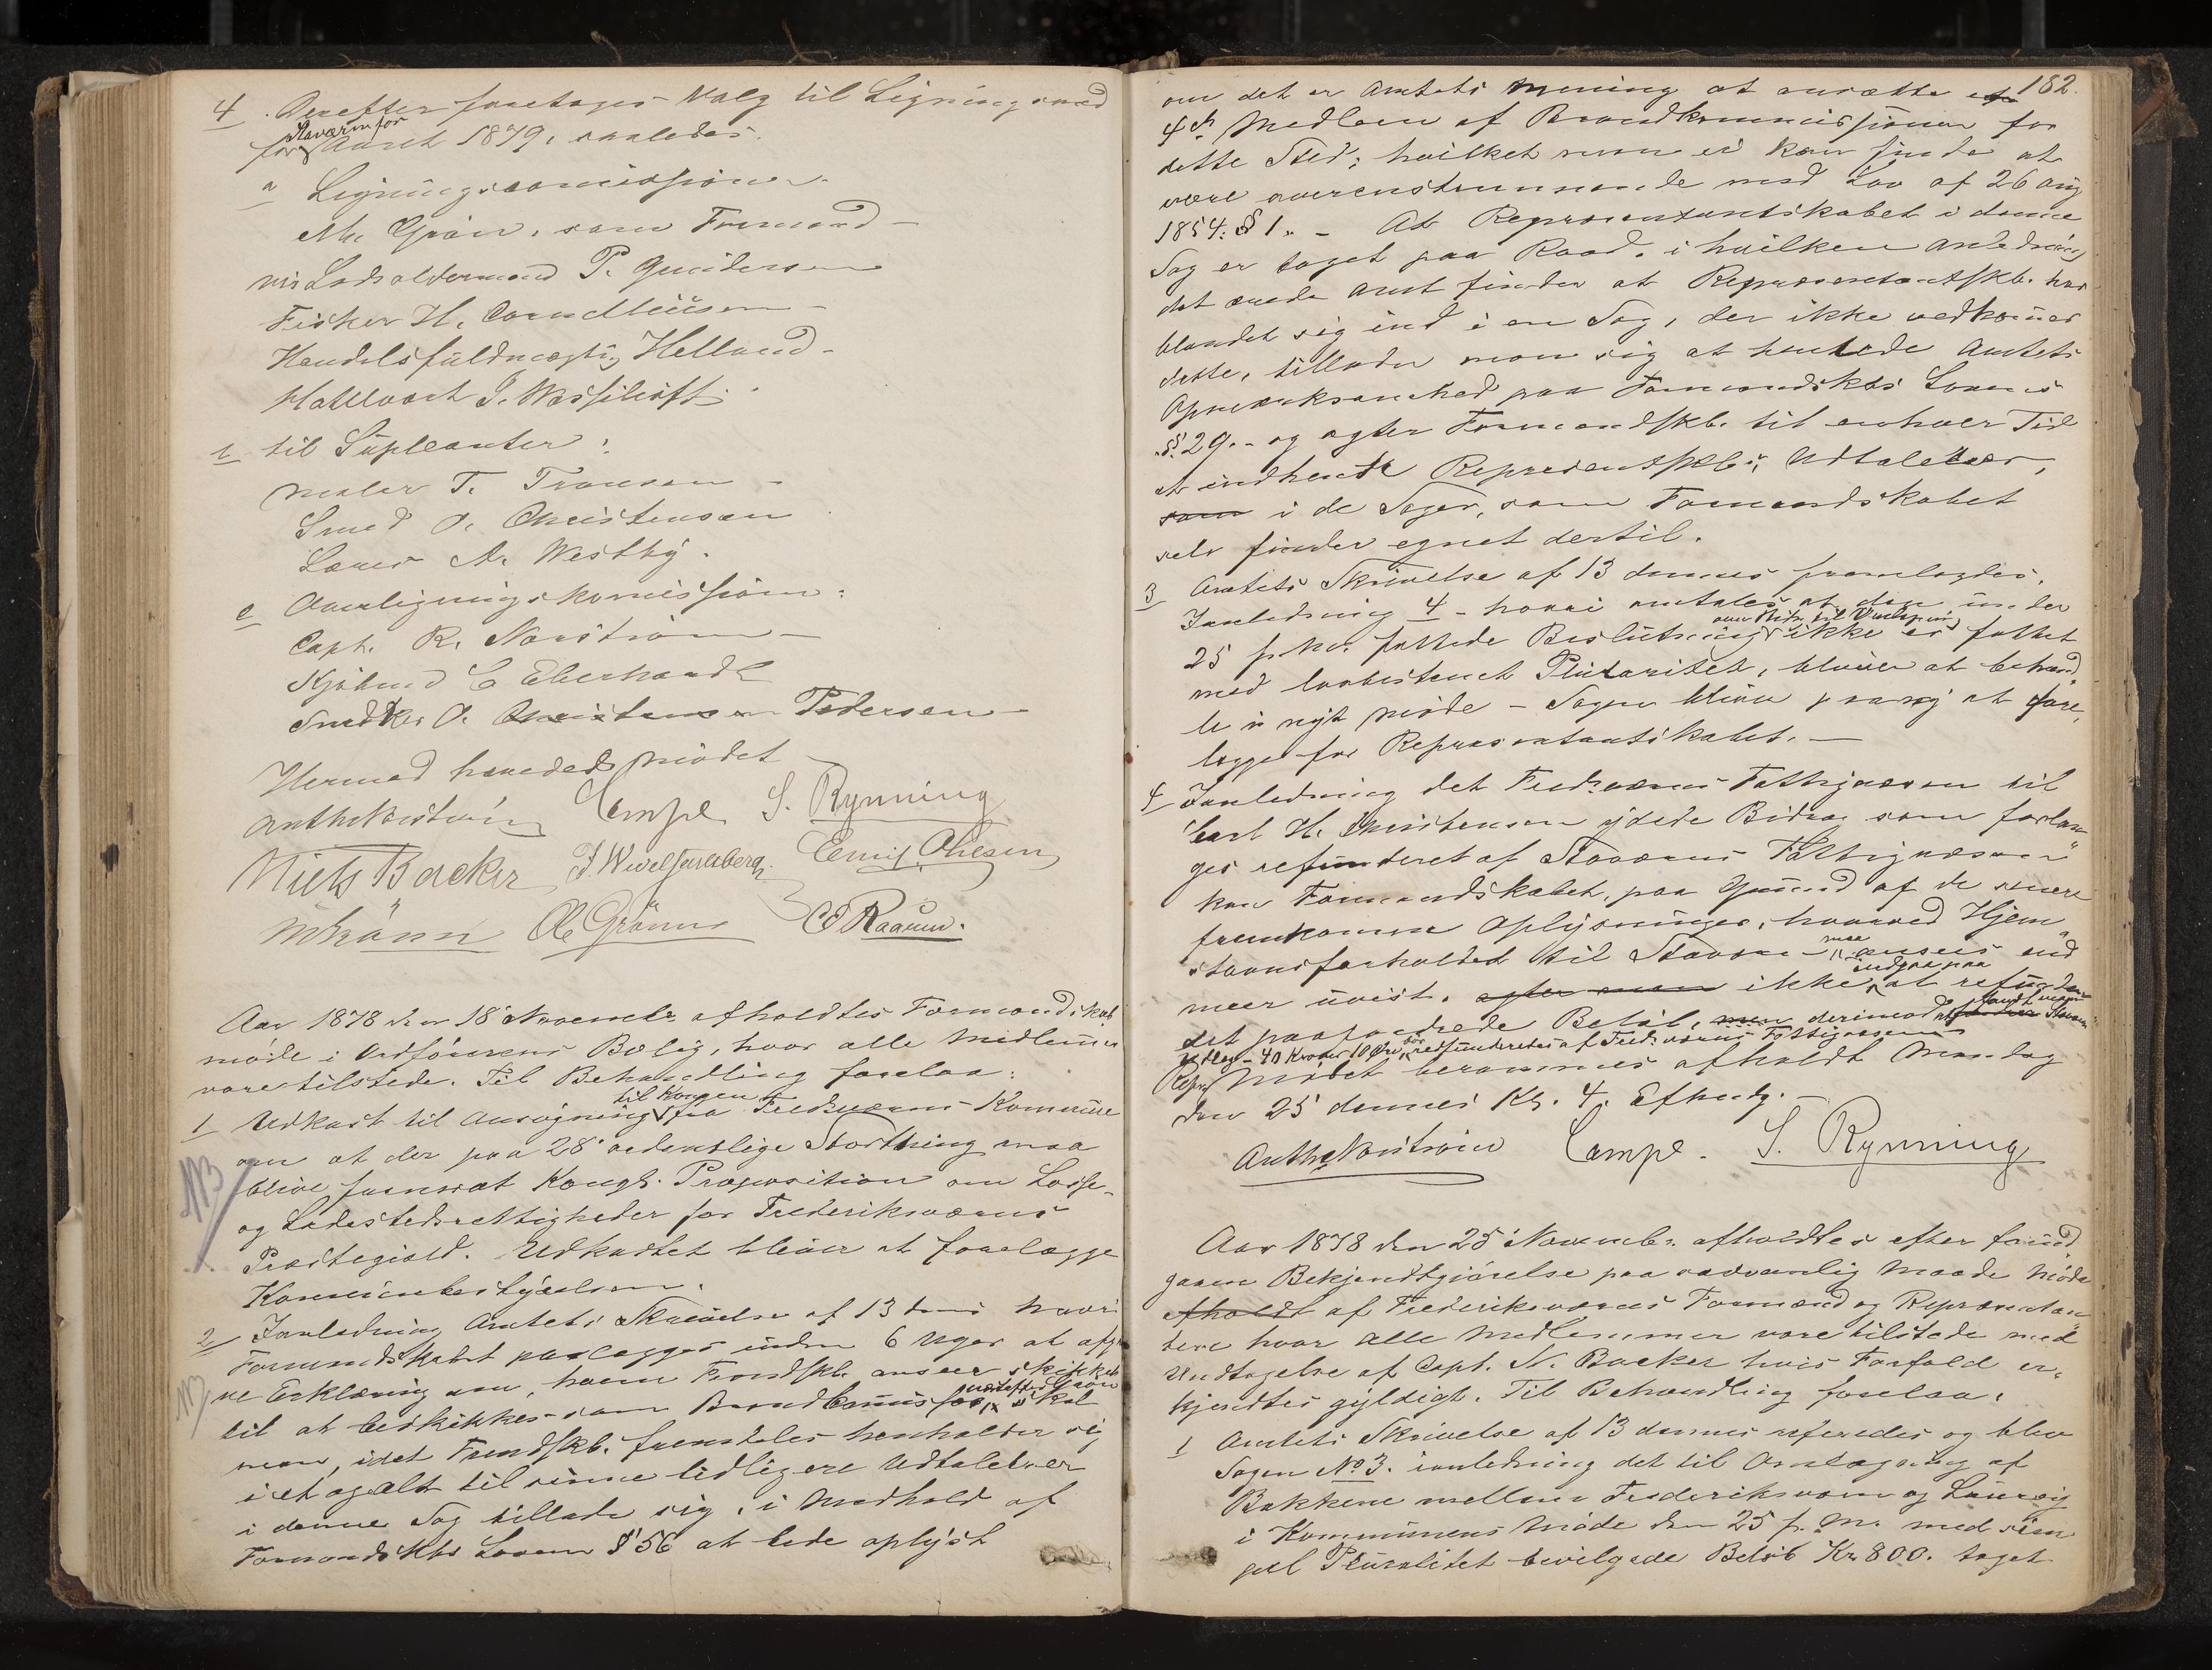 4. Derefter foretoges Valg til Ligningsmænd
for Staværn for Aaret 1879, saaledes.
a Ligningscomissionen.
M. Grøn, som Formand –
Lodsoldermand P. Gundersen
Fisker H. Corneliusen –
Handelsfuldmægtig Helland –
Hallvart J. Wassilioff.
b til Supleanter:
Maler T. Tronsen –
Smed O. Christensen
Lærer A. Westby.
c Overligningskomission:
Capt. R. Norstrøm –
Kjøbmd C Eberhardt
Snedker O. Christensen Pedersen –
Hermed hævedes Mødet
Anth Norstrøm Lempe S. Rynning
Niels Backer J. Wivelfarelsberg Emil Olesen
M Grønn Ol. Grønn C Raaum.
Aar 1878 den 18 November afholdtes Formandskabs
møde i Ordførerens Bolig, hvor alle Medlemmer
vare tilstede. Til Behandling forelaa:
1 Udkast til Ansøgning til Kongen fra Fredsværns Kommune
om at der paa 28 ordentlige Storthing maa
blive fremsat Kongl. Proposition om Losse-
og Ladestedsrettigheder for Frederiksværns
Præstegield. Udkastet bliver at forelægge
Kommunebestyrelsen.
2 I anledning Amtets Skrivelse af 13 dens hvori
Formandskabet paalægges inden 6 Uger at afgi
ve Erklæring om, hvem Formdskb. anseer skikket
til at beskikkes som Brandcommissær skal
man, idet Formdskb. fremdeles henholder sig
i et og alt til sinne tidligere Udtalelser
i denne Sag tillade sig, i Medhold af
Formandskbs Lovens § 56 at bede oplyst
182.
om det er Amtets Mening at ansætte
4de Medlem af Brandkommissionen for
dette Sted; hvilket man ei kan finde at
være overenstemmende med Lov af 26 Aug
1854. § 1. – At Repræsentantskabet i denne
Sag er taget paa Raad, i hvilken Anledning
det ærede Amt finder at Repræsentantskb. har
blandet sig ind i en Sag, der ikke vedkommer
dette, tillader man sig at henlede Amtets
Opmærksomhed paa Formandskbs Lovens
§ 29. – og agter Formandskb. til enhver Tid
at indhente Repræsentskbs Udtalelser,
som i de Sager, som Formandskabet
selv finder egnet dertil.
3 Amtets Skrivelse af 13 dennes fremlagdes.
I anledning 4 – hvori omtales at den under
25 f. M. fattede Beslutning ikke er fattet
med lovbestemt Pluralitet, bliver at behand
le i nyt Møde – Sagen bliver paany at fore
lægge for Repræsentantskabet. –
4 I anledning det Fredsværns Fattigvæsen til
Carl H. Christensen ydede Bidrag som forlan
ges refunderet af Staværns Fattigvæsen
kan Formandskabet, paa Grund af de senere
fremkomne Oplysninger, hvorved Hjem
stavnsforholdet til Staværn maa ansees end
meer uvist, agter man ikke indgaa paa at refundere
det paafordrede Beløb, men derimod
Udlæg – 40 Kroner 10 Øre bør refunderes af Fredsværns Fattigvæsen
Repr Mødet berammes afholdt Mandag
den 25 dennes Kl. 4. Efmdg. –
Anth Norstrøm Lempe. S. Rynning
Aar 1878 den 25 November afholdtes efter forud
gaaen Bekjendtgjørelse paa sædvanlig Maade Møde
afholdt af Frederiksværns Formænd og Repræsentan
tere hvor alle Medlemmer vare tilstede med
Undtagelse af Capt. N. Backer hvis Forfald er
kjendtes gyldigt. Til Behandling forelaa:
1 Amtets Skrivelse af 13 dennes referedes og blev
Sagen No 3. i anledning det til Omlægning af
Bakkene mellem Frederiksværn og Laurvig
i Kommunens Møde den 25 f. M. med sim
pel Pluralitet bevilgede Beløb Kr. 800. taget